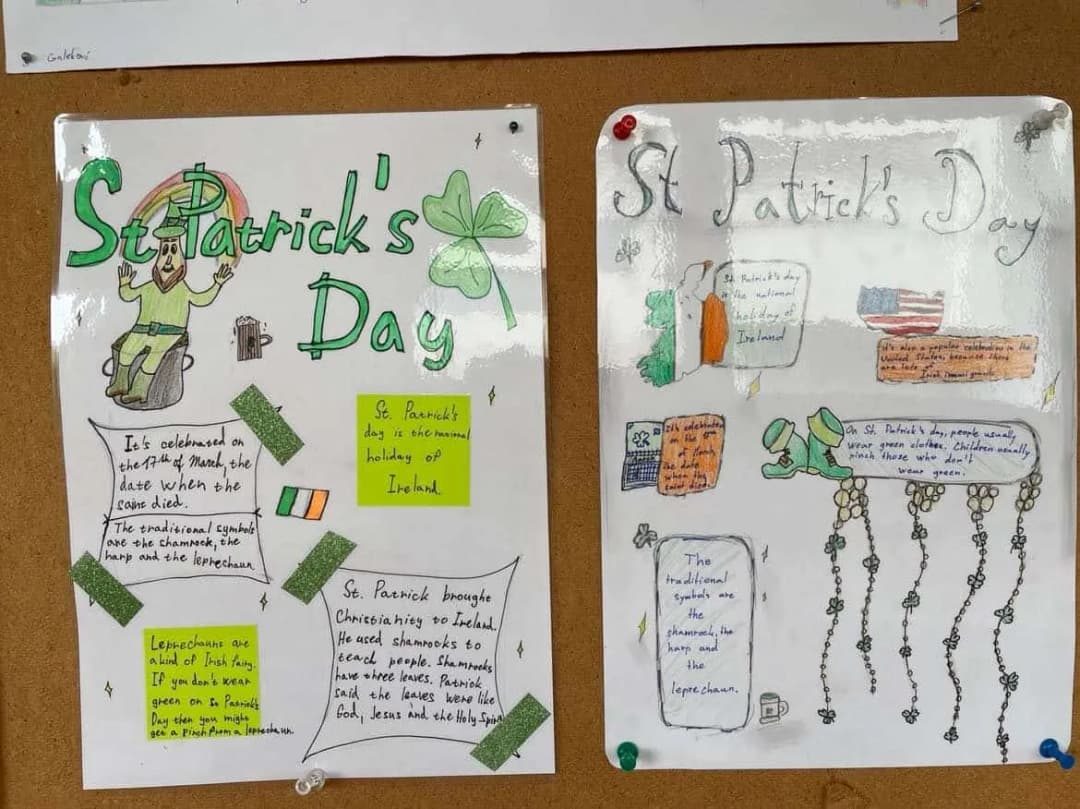 St Patrick's
Day
It's celebrated on
the 17th of March, the
date when the
saint died.
The traditional symbols
are the shamrock, the
harp and the leprechaun
St. Patrick's
day is the national
holiday of
Ireland.
Leprechauns are
a kind of Irish fairy.
If you don't wear
green on St Patrick's
Day then you might
get a pinch from a leprechaun.
St. Patrick brought
Christianity to Ireland.
He used shamrocks to
teach people. Shamrocks
have three leaves. Patrick
said the leaves were like
God, Jesus and the Holy Spirit
St Patrick's Day
St. Patrick's day
is the national
holiday of
Ireland
It's also a popular celebration in the
United States, because there
are lots of
Irish immigrants
It's celebrated
on the 17th
of March,
the date
when the
saint died.
On St. Patrick's day, people usually
wear green clothes. Children usually
pinch those who don't
wear green.
The
traditional
symbols are
the
shamrock, the
harp and
the
leprechaun.